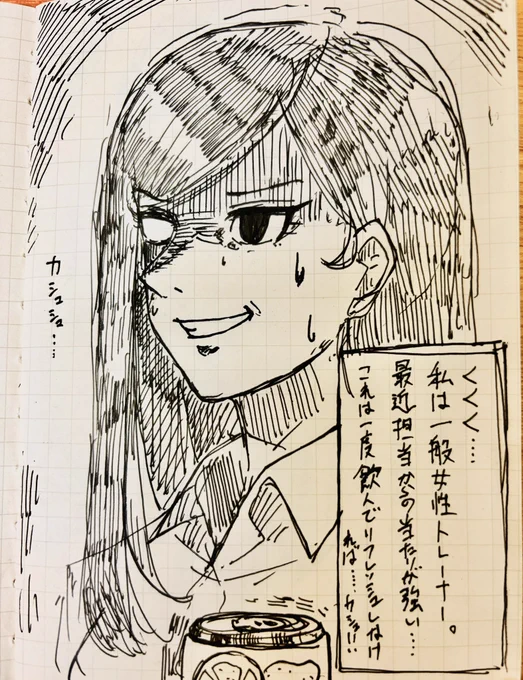 くくく‥‥
私は一般女性トレーナー。
最近担当からの当たりが強い‥‥
これは一度飲んでリフレッシュしなけ
れば‥‥カシュ!!
カシュシュ‥‥